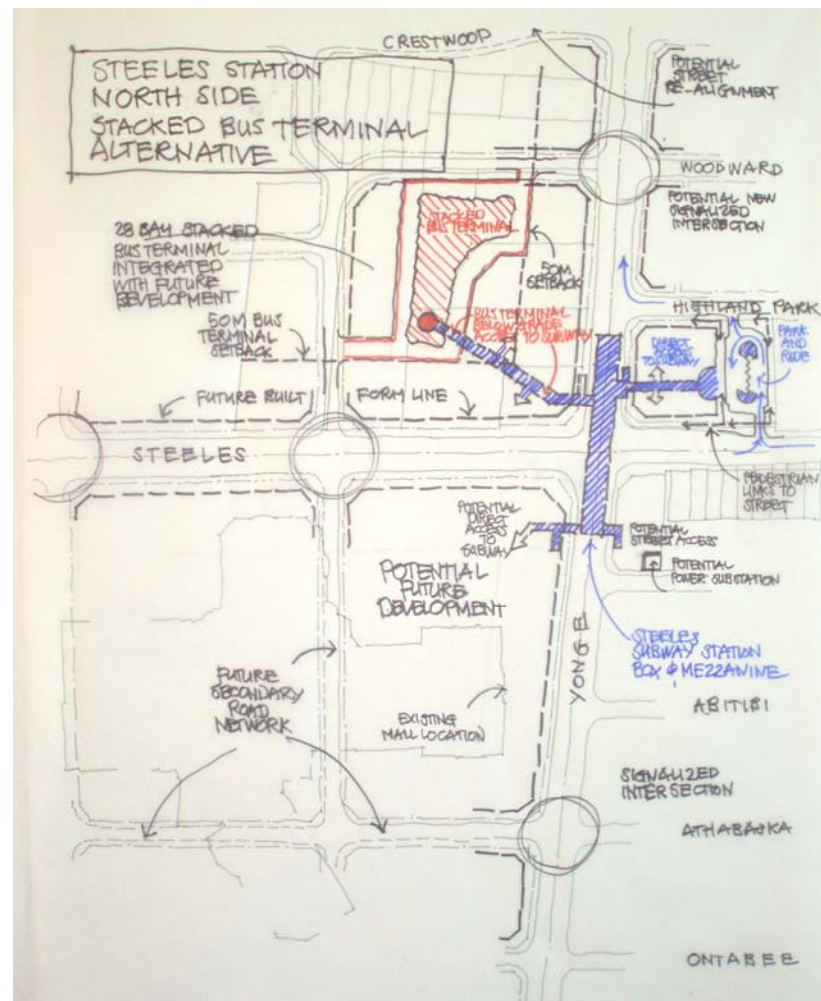 CRESTWOOD
STEELES STATION
NORTH SIDE
STACKED BUS TERMINAL
ALTERNATIVE
POTENTIAL
STREET
RE-ALIGNMENT
WOODWARD
POTENTIAL NEW
SIGNALIZED
INTERSECTION
STACKED
BUS TERMINAL
28 BAY STACKED
BUS TERMINAL
INTEGRATED
WITH FUTURE
DEVELOPMENT
50M
SETBACK
HIGHLAND PARK
50M BUS
TERMINAL
SETBACK
BUS TERMINAL
BELOW GRADE
ACCESS TO SUBWAY
DIRECT
TO SUBWAY
PARK
AND
RIDE
FUTURE BUILT
FORM LINE
STEELES
PEDESTRIAN
LINKS TO
STREET
POTENTIAL
DIRECT
ACCESS
TO
SUBWAY
POTENTIAL
STREET ACCESS
POTENTIAL
POWER SUBSTATION
POTENTIAL
FUTURE
DEVELOPMENT
YONGE
STEELES
SUBWAY STATION
BOX & MEZZANINE
FUTURE
SECONDARY
ROAD
NETWORK
EXISTING
MALL LOCATION
ABITIBI
SIGNALIZED
INTERSECTION
ATHABASKA
ONTABEE